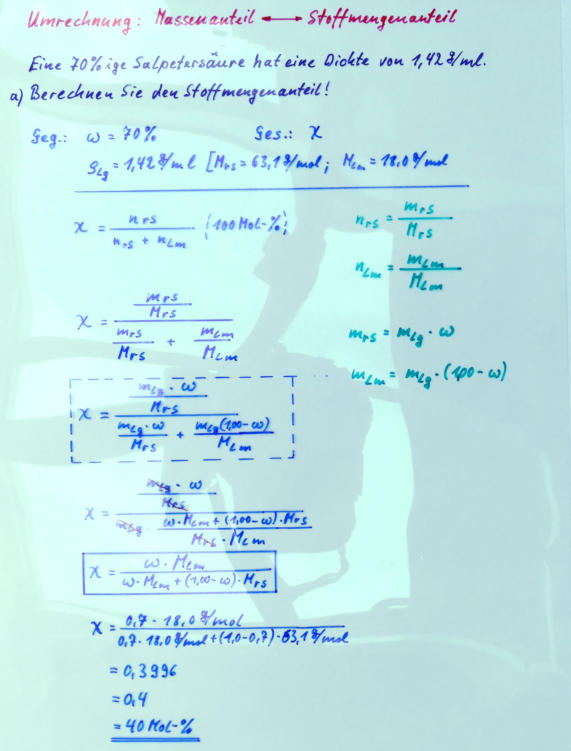 Umrechnung: Massenanteil ⟷ Stoffmengenanteil
Eine 70%ige Salpetersäure hat eine Dichte von 1,42 g/ml.
a) Berechnen Sie den Stoffmengenanteil!
Geg.: ω = 70% Ges.: χ
ρLg = 1,42 g/ml [MrS = 63,1 g/mol; MLm = 18,0 g/mol
χ = nrS / (nrS + nLm) (100 Mol-%)
nrS = mrS / MrS
nLm = mLm / MLm
χ = (mrS / MrS) / (mrS / MrS + mLm / MLm)
mrS = mLg · ω
mLm = mLg · (1,00 - ω)
χ = (mLg · ω / MrS) / (mLg · ω / MrS + mLg(1,00 - ω) / MLm)
χ = (mLg · ω / MrS) / (mLg · (ω · MLm + (1,00 - ω) · MrS) / (MrS · MLm))
χ = ω · MLm / (ω · MLm + (1,00 - ω) · MrS)
χ = 0,7 · 18,0 g/mol / (0,7 · 18,0 g/mol + (1,0 - 0,7) · 63,1 g/mol)
= 0,3996
= 0,4
= 40 Mol-%